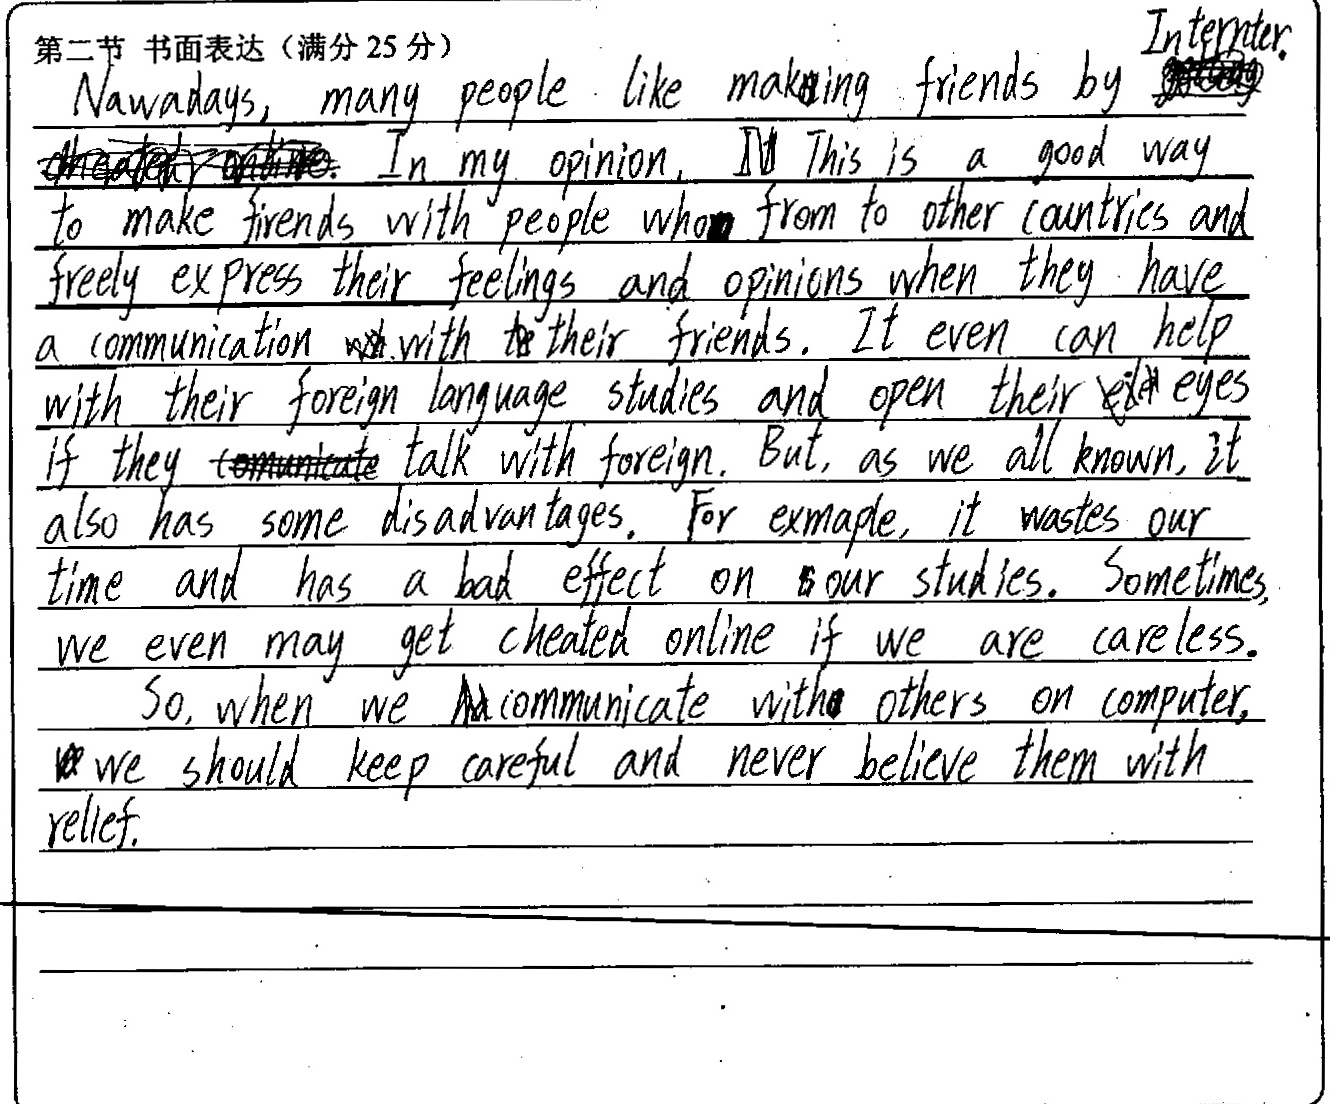 第二节 书面表达（满分 25 分）
Internter.
Nawadays, many people like making friends by
In my opinion, This is a good way
to make firends with people who from to other countries and
freely express their feelings and opinions when they have
a communication with their friends. It even can help
with their foreign language studies and open their eyes
if they comunicate talk with foreign. But, as we all known, it
also has some disadvantages. For exmaple, it wastes our
time and has a bad effect on our studies. Sometimes,
we even may get cheated online if we are careless.
So, when we communicate with others on computer,
we should keep careful and never believe them with
relief.